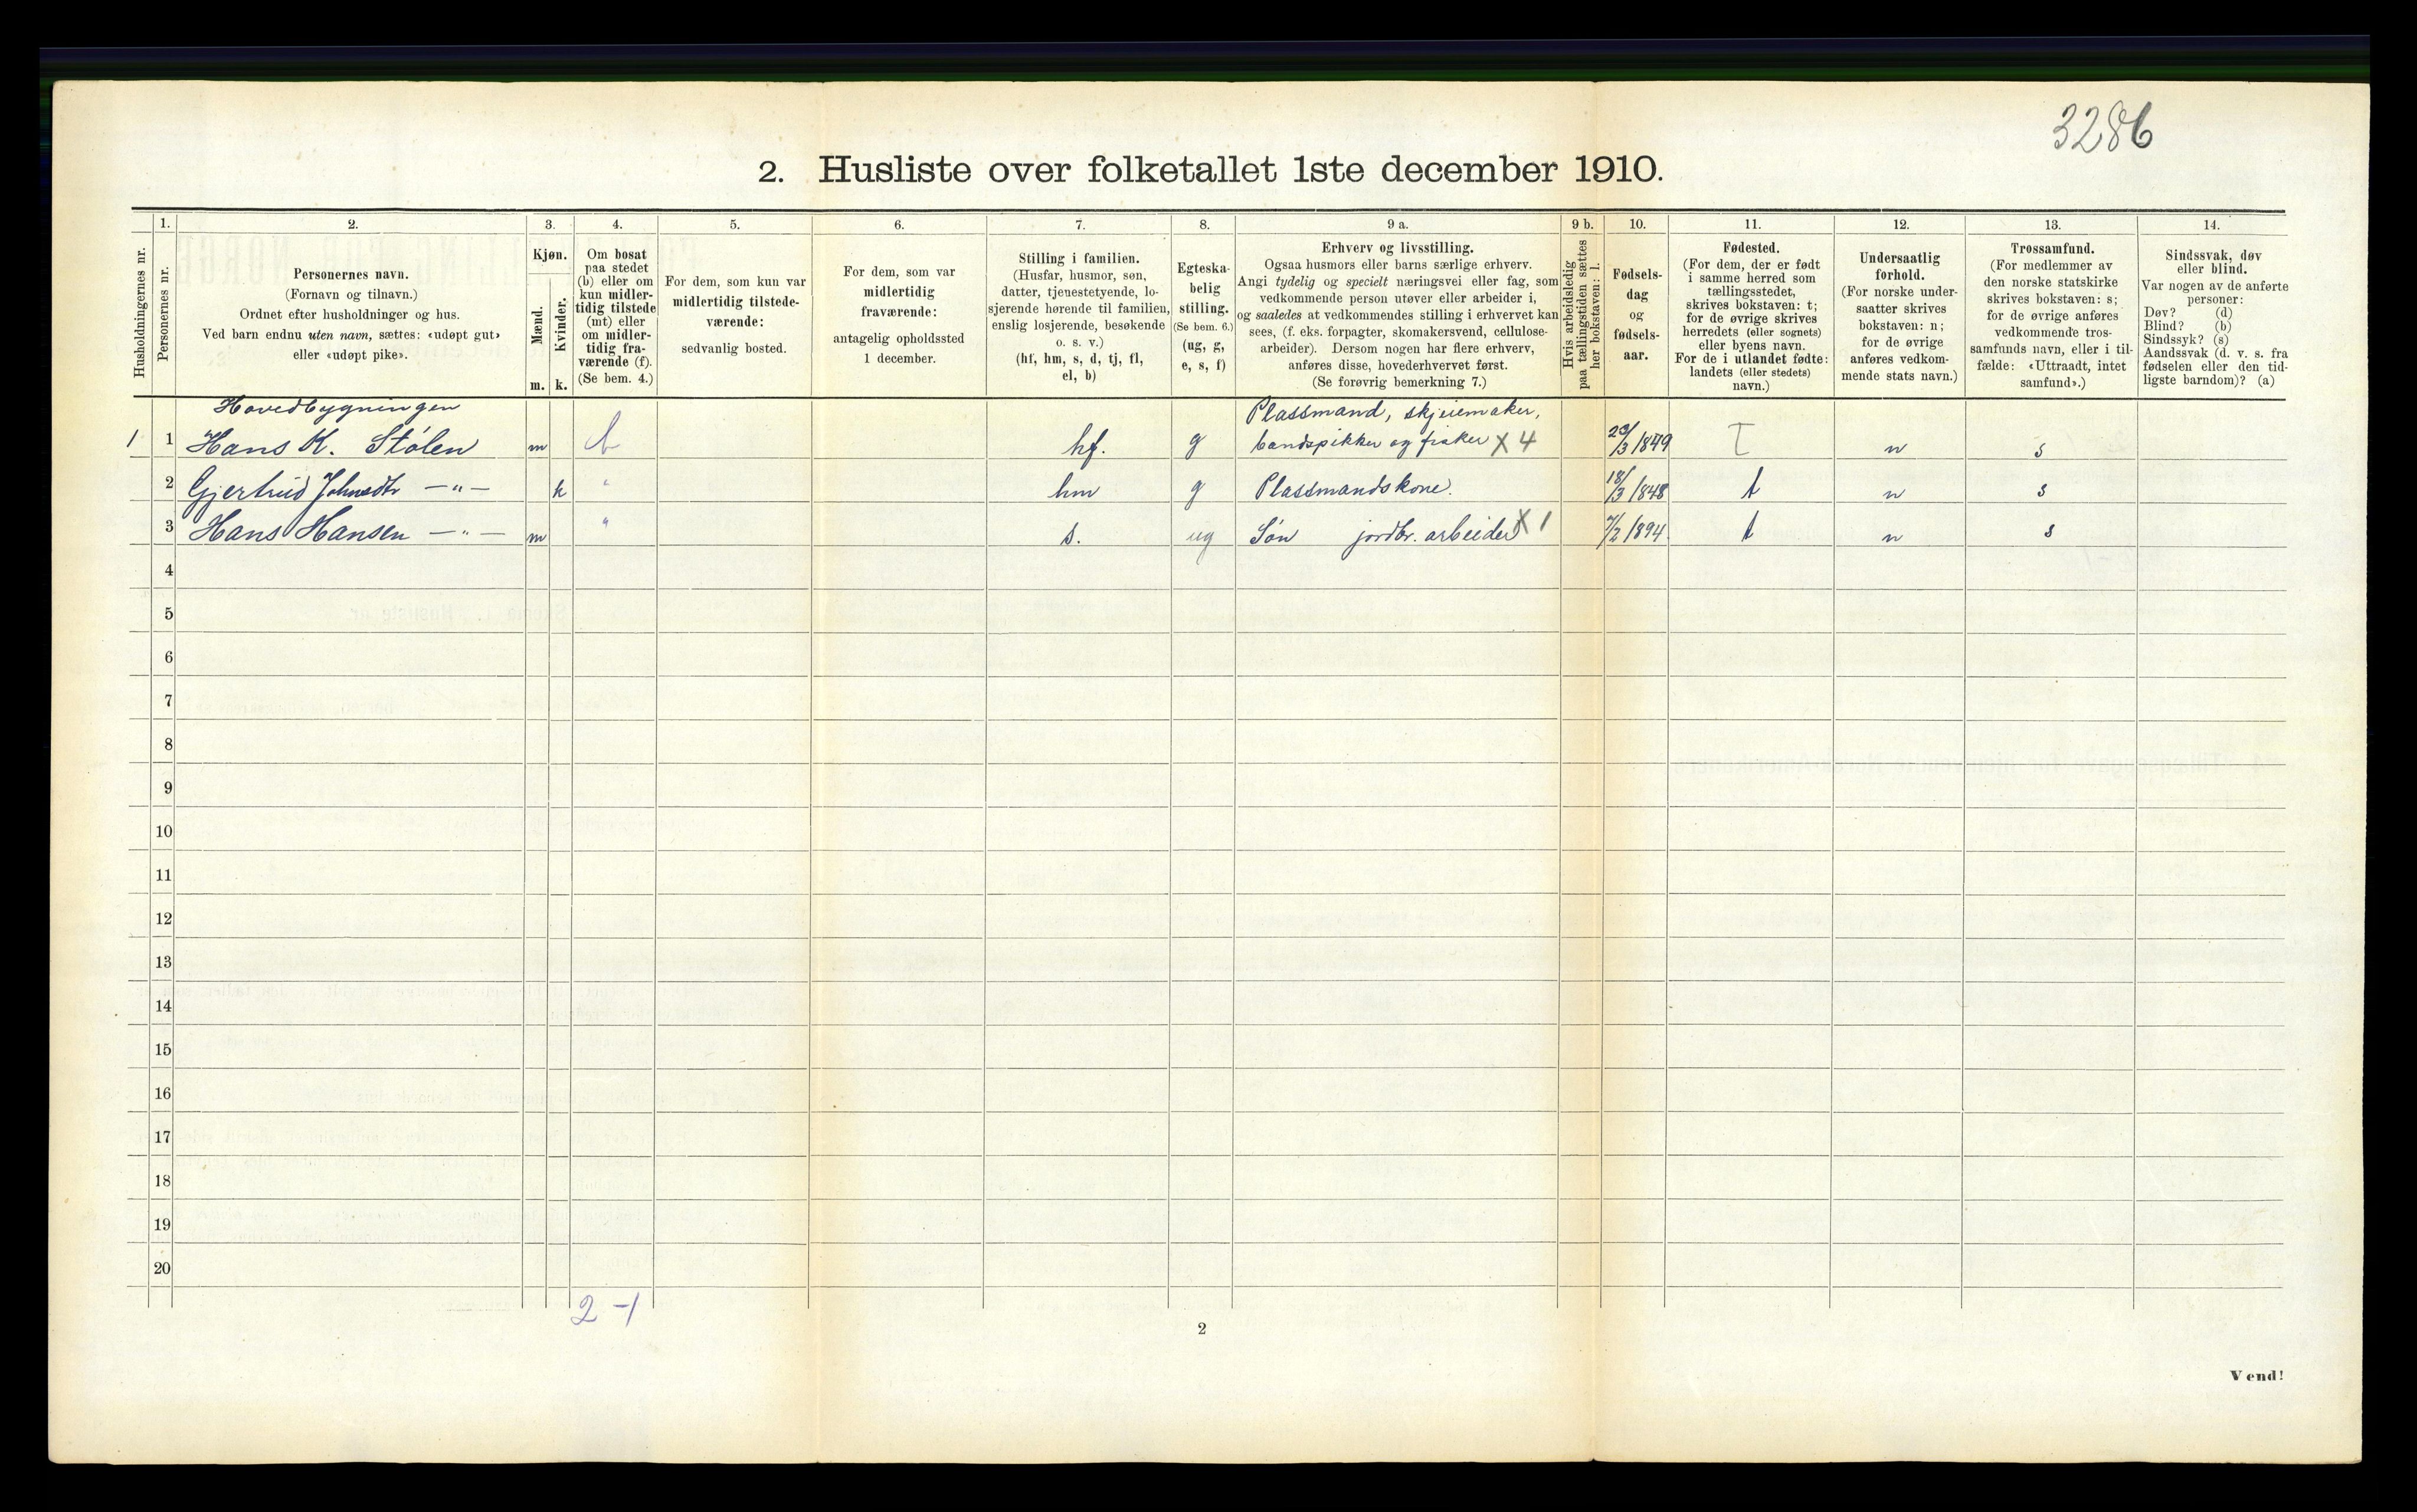 3286
2. Husliste over folketallet 1ste december 1910.
Husholdningernes nr.
1.
Personernes nr.
2.
Personernes navn.
(Fornavn og tilnavn.)
Ordnet efter husholdninger og hus.
Ved barn endnu uten navn, sættes: «udøpt gut»
eller «udøpt pike».
3.
Kjøn.
Mænd.
Kvinder.
m. k.
4.
Om bosat
paa stedet
(b) eller om
kun midler-
tidig tilstede
(mt) eller
om midler-
tidig fra-
værende (f).
(Se bem. 4.)
5.
For dem, som kun var
midlertidig tilstede-
værende:
sedvanlig bosted.
6.
For dem, som var
midlertidig
fraværende:
antagelig opholdssted
1 december.
7.
Stilling i familien.
(Husfar, husmor, søn,
datter, tjenestetyende, lo-
sjerende hørende til familien,
enslig losjerende, besøkende
o. s. v.)
(hf, hm, s, d, tj, fl,
el, b)
8.
Egteska-
belig
stilling.
(Se bem. 6.)
(ug, g,
e, s, f)
9 a.
Erhverv og livsstilling.
Ogsaa husmors eller barns særlige erhverv.
Angi tydelig og specielt næringsvei eller fag, som
vedkommende person utøver eller arbeider i,
og saaledes at vedkommendes stilling i erhvervet kan
sees, (f. eks. forpagter, skomakersvend, cellulose-
arbeider). Dersom nogen har flere erhverv,
anføres disse, hovederhvervet først.
(Se forøvrig bemerkning 7.)
9 b.
Hvis arbeidsledig
paa tællingstiden sættes
her bokstaven: l.
10.
Fødsels-
dag
og
fødsels-
aar.
11.
Fødested.
(For dem, der er født
i samme herred som
tællingsstedet,
skrives bokstaven: t;
for de øvrige skrives
herredets (eller sognets)
eller byens navn.
For de i utlandet fødte:
landets (eller stedets)
navn.)
12.
Undersaatlig
forhold.
(For norske under-
saatter skrives
bokstaven: n;
for de øvrige
anføres vedkom-
mende stats navn.)
13.
Trossamfund.
(For medlemmer av
den norske statskirke
skrives bokstaven: s;
for de øvrige anføres
vedkommende tros-
samfunds navn, eller i til-
fælde: «Uttraadt, intet
samfund».)
14.
Sindssvak, døv
eller blind.
Var nogen av de anførte
personer:
Døv? (d)
Blind? (b)
Sindssyk? (s)
Aandssvak (d. v. s. fra
fødselen eller den tid-
ligste barndom)? (a)
Hovedbygningen Plassmand, skjeiemaker,
1 1 Hans K. Stølen m b hf. g bandspikker og fisker X 4 23/3 1849 T n s
2 Gjertrud Johnsdtr —"— k " hm g Plassmandskone. 18/3 1848 t n s
3 Hans Hansen —"— m " s. ug Søn jordbr. arbeider X 1 7/2 1894 t n s
4
5
6
7
8
9
10
11
12
13
14
15
16
17
18
19
20
2 -1
2
Vend!